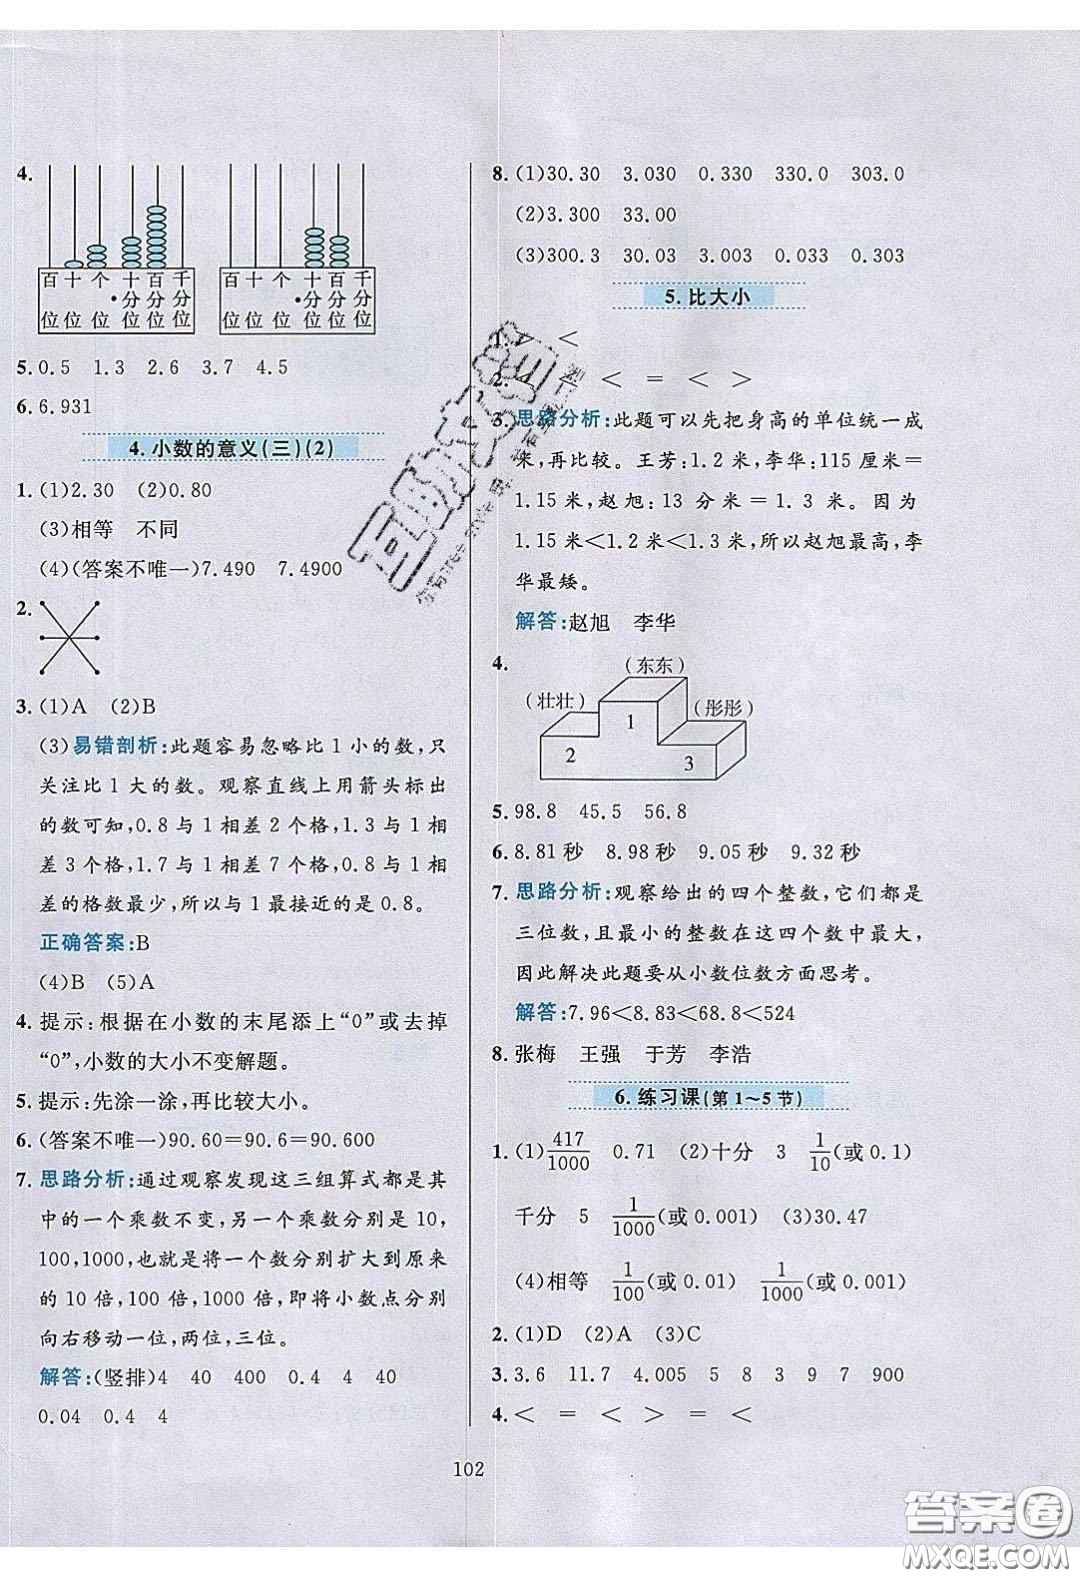 4.
百 十 个 十 百 千
· 分 分 分
位 位 位 位 位 位
百 十 个 十 百 千
· 分 分 分
位 位 位 位 位 位
5. 0.5 1.3 2.6 3.7 4.5
6. 6.931
4. 小数的意义(三)(2)
1. (1)2.30 (2)0.80
(3)相等 不同
(4)(答案不唯一)7.490 7.4900
2.
3. (1)A (2)B
(3)易错剖析:此题容易忽略比1小的数,只
关注比1大的数。观察直线上用箭头标出
的数可知,0.8与1相差2个格,1.3与1相
差3个格,1.7与1相差7个格,0.8与1相
差的格数最少,所以与1最接近的是0.8。
正确答案:B
(4)B (5)A
4. 提示:根据在小数的末尾添上“0”或去掉
“0”,小数的大小不变解题。
5. 提示:先涂一涂,再比较大小。
6. (答案不唯一)90.60=90.6=90.600
7. 思路分析:通过观察发现这三组算式都是其
中的一个乘数不变,另一个乘数分别是10,
100,1000,也就是将一个数分别扩大到原来
的10倍,100倍,1000倍,即将小数点分别
向右移动一位,两位,三位。
解答:(竖排)4 40 400 0.4 4 40
0.04 0.4 4
8. (1)30.30 3.030 0.330 330.0 303.0
(2)3.300 33.00
(3)300.3 30.03 3.003 0.033 0.303
5. 比大小
1. <
2. < = < >
3. 思路分析:此题可以先把身高的单位统一成
米,再比较。王芳:1.2米,李华:115厘米=
1.15米,赵旭:13分米=1.3米。因为
1.15米<1.2米<1.3米,所以赵旭最高,李
华最矮。
解答:赵旭 李华
4.
(东东)
(壮壮)
(彤彤)
1
2
3
5. 98.8 45.5 56.8
6. 8.81秒 8.98秒 9.05秒 9.32秒
7. 思路分析:观察给出的四个整数,它们都是
三位数,且最小的整数在这四个数中最大,
因此解决此题要从小数位数方面思考。
解答:7.96<8.83<68.8<524
8. 张梅 王强 于芳 李浩
6. 练习课(第1~5节)
1. (1)417/1000 0.71 (2)十分 3 1/10(或0.1)
千分 5 1/1000(或0.001) (3)30.47
(4)相等 1/100(或0.01) 1/1000(或0.001)
2. (1)D (2)A (3)C
3. 3.6 11.7 4.005 5 8 3 9 7 900
4. < = < > = <
102
答案圈
MXQE.COM